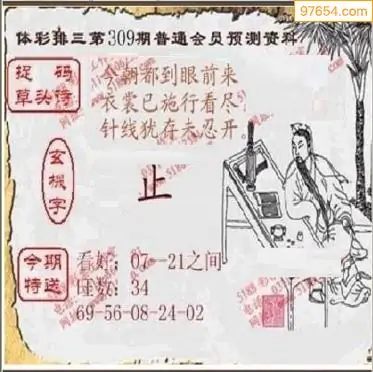 97654.com
体彩排三第309期普通会员预测资料
捉码
草头诗
今朝都到眼前来
衣裳已施行看尽
针线犹存未忍开
玄機字
止
今期
特送
看好：07--21之间
合数：34
69-56-08-24-02